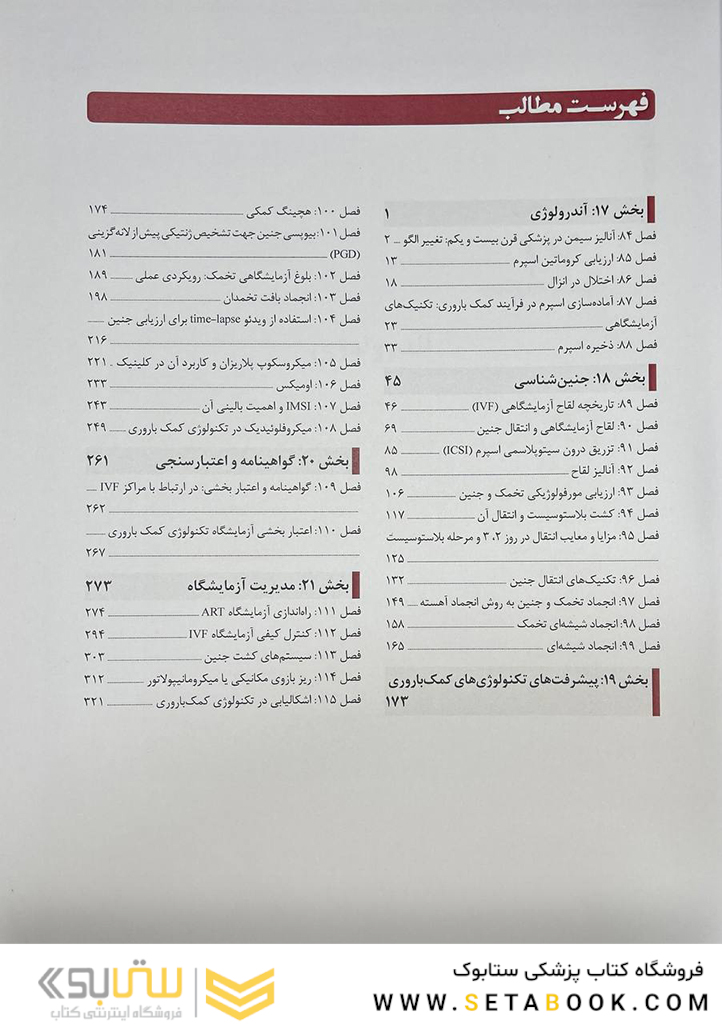 فهرست مطالب
بخش ۱۷: آندرولوژی ۱
فصل ۸۴: آنالیز سیمن در پزشکی قرن بیست و یکم: تغییر الگو ۲
فصل ۸۵: ارزیابی کروماتین اسپرم ۱۳
فصل ۸۶: اختلال در انزال ۱۸
فصل ۸۷: آماده‌سازی اسپرم در فرآیند کمک باروری: تکنیک‌های
آزمایشگاهی ۲۳
فصل ۸۸: ذخیره اسپرم ۳۳
بخش ۱۸: جنین‌شناسی ۴۵
فصل ۸۹: تاریخچه لقاح آزمایشگاهی (IVF) ۴۶
فصل ۹۰: لقاح آزمایشگاهی و انتقال جنین ۶۹
فصل ۹۱: تزریق درون سیتوپلاسمی اسپرم (ICSI) ۸۵
فصل ۹۲: آنالیز لقاح ۹۸
فصل ۹۳: ارزیابی مورفولوژیکی تخمک و جنین ۱۰۶
فصل ۹۴: کشت بلاستوسیست و انتقال آن ۱۱۷
فصل ۹۵: مزایا و معایب انتقال در روز ۲، ۳ و مرحله بلاستوسیست
۱۲۵
فصل ۹۶: تکنیک‌های انتقال جنین ۱۳۲
فصل ۹۷: انجماد تخمک و جنین به روش انجماد آهسته ۱۴۹
فصل ۹۸: انجماد شیشه‌ای تخمک ۱۵۸
فصل ۹۹: انجماد شیشه‌ای ۱۶۵
بخش ۱۹: پیشرفت‌های تکنولوژی‌های کمک‌باروری
۱۷۳
فصل ۱۰۰: هچینگ کمکی ۱۷۴
فصل ۱۰۱: بیوپسی جنین جهت تشخیص ژنتیکی پیش از لانه‌گزینی
(PGD) ۱۸۱
فصل ۱۰۲: بلوغ آزمایشگاهی تخمک: رویکردی عملی ۱۸۹
فصل ۱۰۳: انجماد بافت تخمدان ۱۹۸
فصل ۱۰۴: استفاده از ویدئو time-lapse برای ارزیابی جنین
۲۱۶
فصل ۱۰۵: میکروسکوپ پلاریزان و کاربرد آن در کلینیک ۲۲۱
فصل ۱۰۶: اومیکس ۲۳۳
فصل ۱۰۷: IMSI و اهمیت بالینی آن ۲۴۳
فصل ۱۰۸: میکروفلوئیدیک در تکنولوژی کمک باروری ۲۴۹
بخش ۲۰: گواهینامه و اعتبارسنجی ۲۶۱
فصل ۱۰۹: گواهینامه و اعتبار بخشی: در ارتباط با مراکز IVF
۲۶۲
فصل ۱۱۰: اعتبار بخشی آزمایشگاه تکنولوژی کمک باروری
۲۶۷
بخش ۲۱: مدیریت آزمایشگاه ۲۷۳
فصل ۱۱۱: راه‌اندازی آزمایشگاه ART ۲۷۴
فصل ۱۱۲: کنترل کیفی آزمایشگاه IVF ۲۹۴
فصل ۱۱۳: سیستم‌های کشت جنین ۳۰۳
فصل ۱۱۴: ریز بازوی مکانیکی یا میکرومانیپولاتور ۳۱۲
فصل ۱۱۵: اشکالیابی در تکنولوژی کمک‌باروری ۳۲۱
فروشگاه کتاب پزشکی ستابوک
WWW.SETABOOK.COM
ستابوک
فروشگاه اینترنتی کتاب